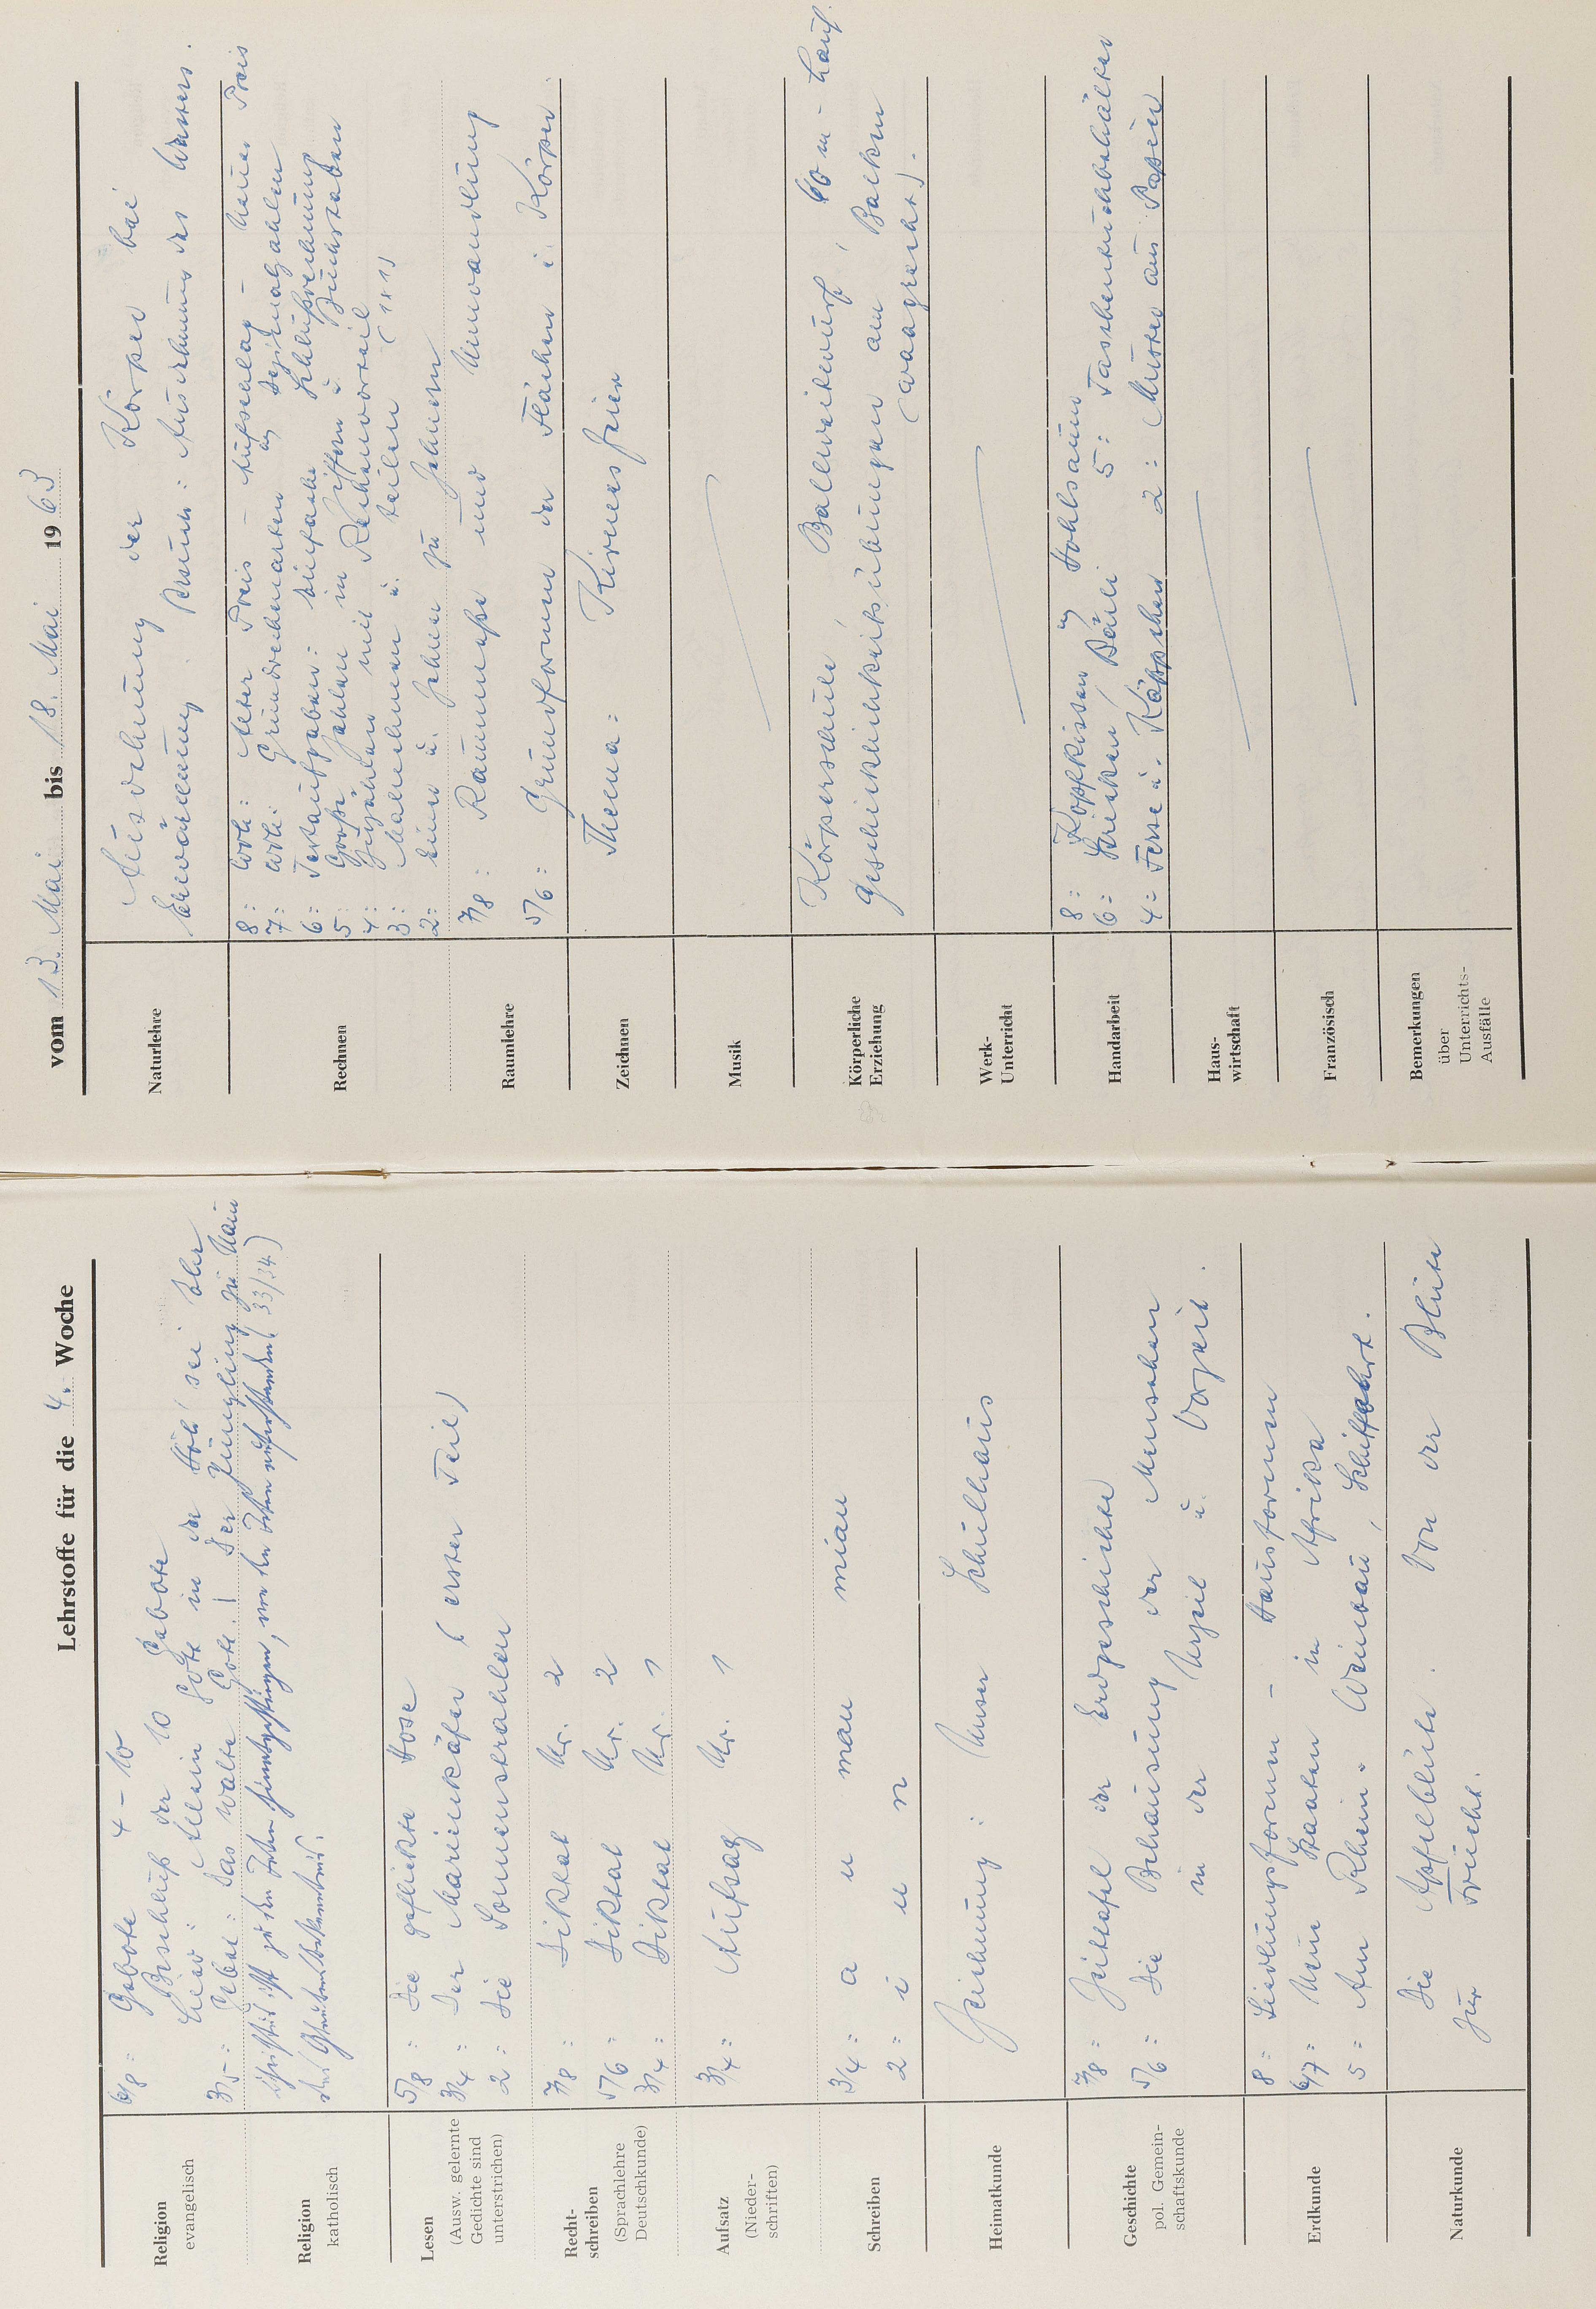 Lehrstoffe für die 4. Woche
Religion
evangelisch
6/8: Gebote 4 – 10
Beschluß der 10 Gebote
Lied: Allein Gott in der Höh' sei Ehr
3/5: Gebet: Das walte Gott! Der Jüngling zu Nain
Religion
katholisch
Christus ist zu den Toten hinabgestiegen, von den Toten auferstanden (33/34)
Lesen
(Ausw. gelernte
Gedichte sind
unterstrichen)
5/8: Die geflickte Hose
3/4: Der Marienkäfer (erster Teil)
2: Die Sonnenstrahlen
Recht-
schreiben
(Sprachlehre
Deutschkunde)
7/8: Diktat Nr. 2
5/6: Diktat Nr. 2
3/4: Diktat Nr. 1
Aufsatz
(Nieder-
schriften)
3/4: Aufsatz Nr. 1
Schreiben
3/4: a u man mian
2: i u n
Heimatkunde
Zeichnung: Unser Schulhaus
Geschichte
pol. Gemein-
schaftskunde
7/8: Zeittafel der Erdgeschichte
5/6: Die Behausung der Menschen
in der Urzeit u. Vorzeit.
Erdkunde
8: Siedlungsformen – Hausformen
6/7: Neue Staaten in Afrika
5: Am Rhein. Weinbau, Schiffahrt.
Naturkunde
Die Apfelblüte. Von der Blüte
zur Frucht.
vom 13. Mai bis 18. Mai 1963
Naturlehre
Ausdehnung der Körper bei
Erwärmung. Ausdehnung des Wassers.
Rechnen
8: Wdh: Alter Preis – Aufschlag – Neuer Preis
7: Wdh: Grundrechenarten mit Dezimalzahlen
6: Textaufgaben: Einfache Schlußrechnung
5: Große Zahlen in Ziffern u. Buchstaben
4: Zuzählen mit Rechenvorteil
3: Malnehmen u. teilen (1x1)
2: Einer u. Zehner zu Zehnern
Raumlehre
7/8: Raummaße und Umwandlung
5/6: Grundformen der Flächen u. Körper.
Zeichnen
Thema: Kirmesfeier
Musik
Körperliche
Erziehung
Körperschule, Ballweitwurf, 60 m - Lauf.
Geschicklichkeitsübungen am Balken
(waagrecht).
Werk-
Unterricht
Handarbeit
8: Kopfkissen mit Hohlsaum
6: Stricken, Bäuli 5: Taschentuchbehälter
4: Ferse u. Käppchen 2: Muster aus Papier
Haus-
wirtschaft
Französisch
Bemerkungen
über
Unterrichts-
Ausfälle